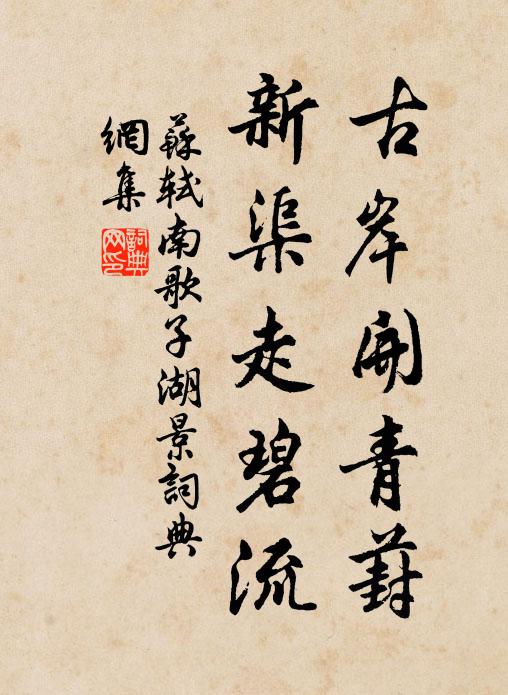 古岸開青葑
新渠走碧流
蘇軾南歌子湖景詞典
網集
詞典
网印